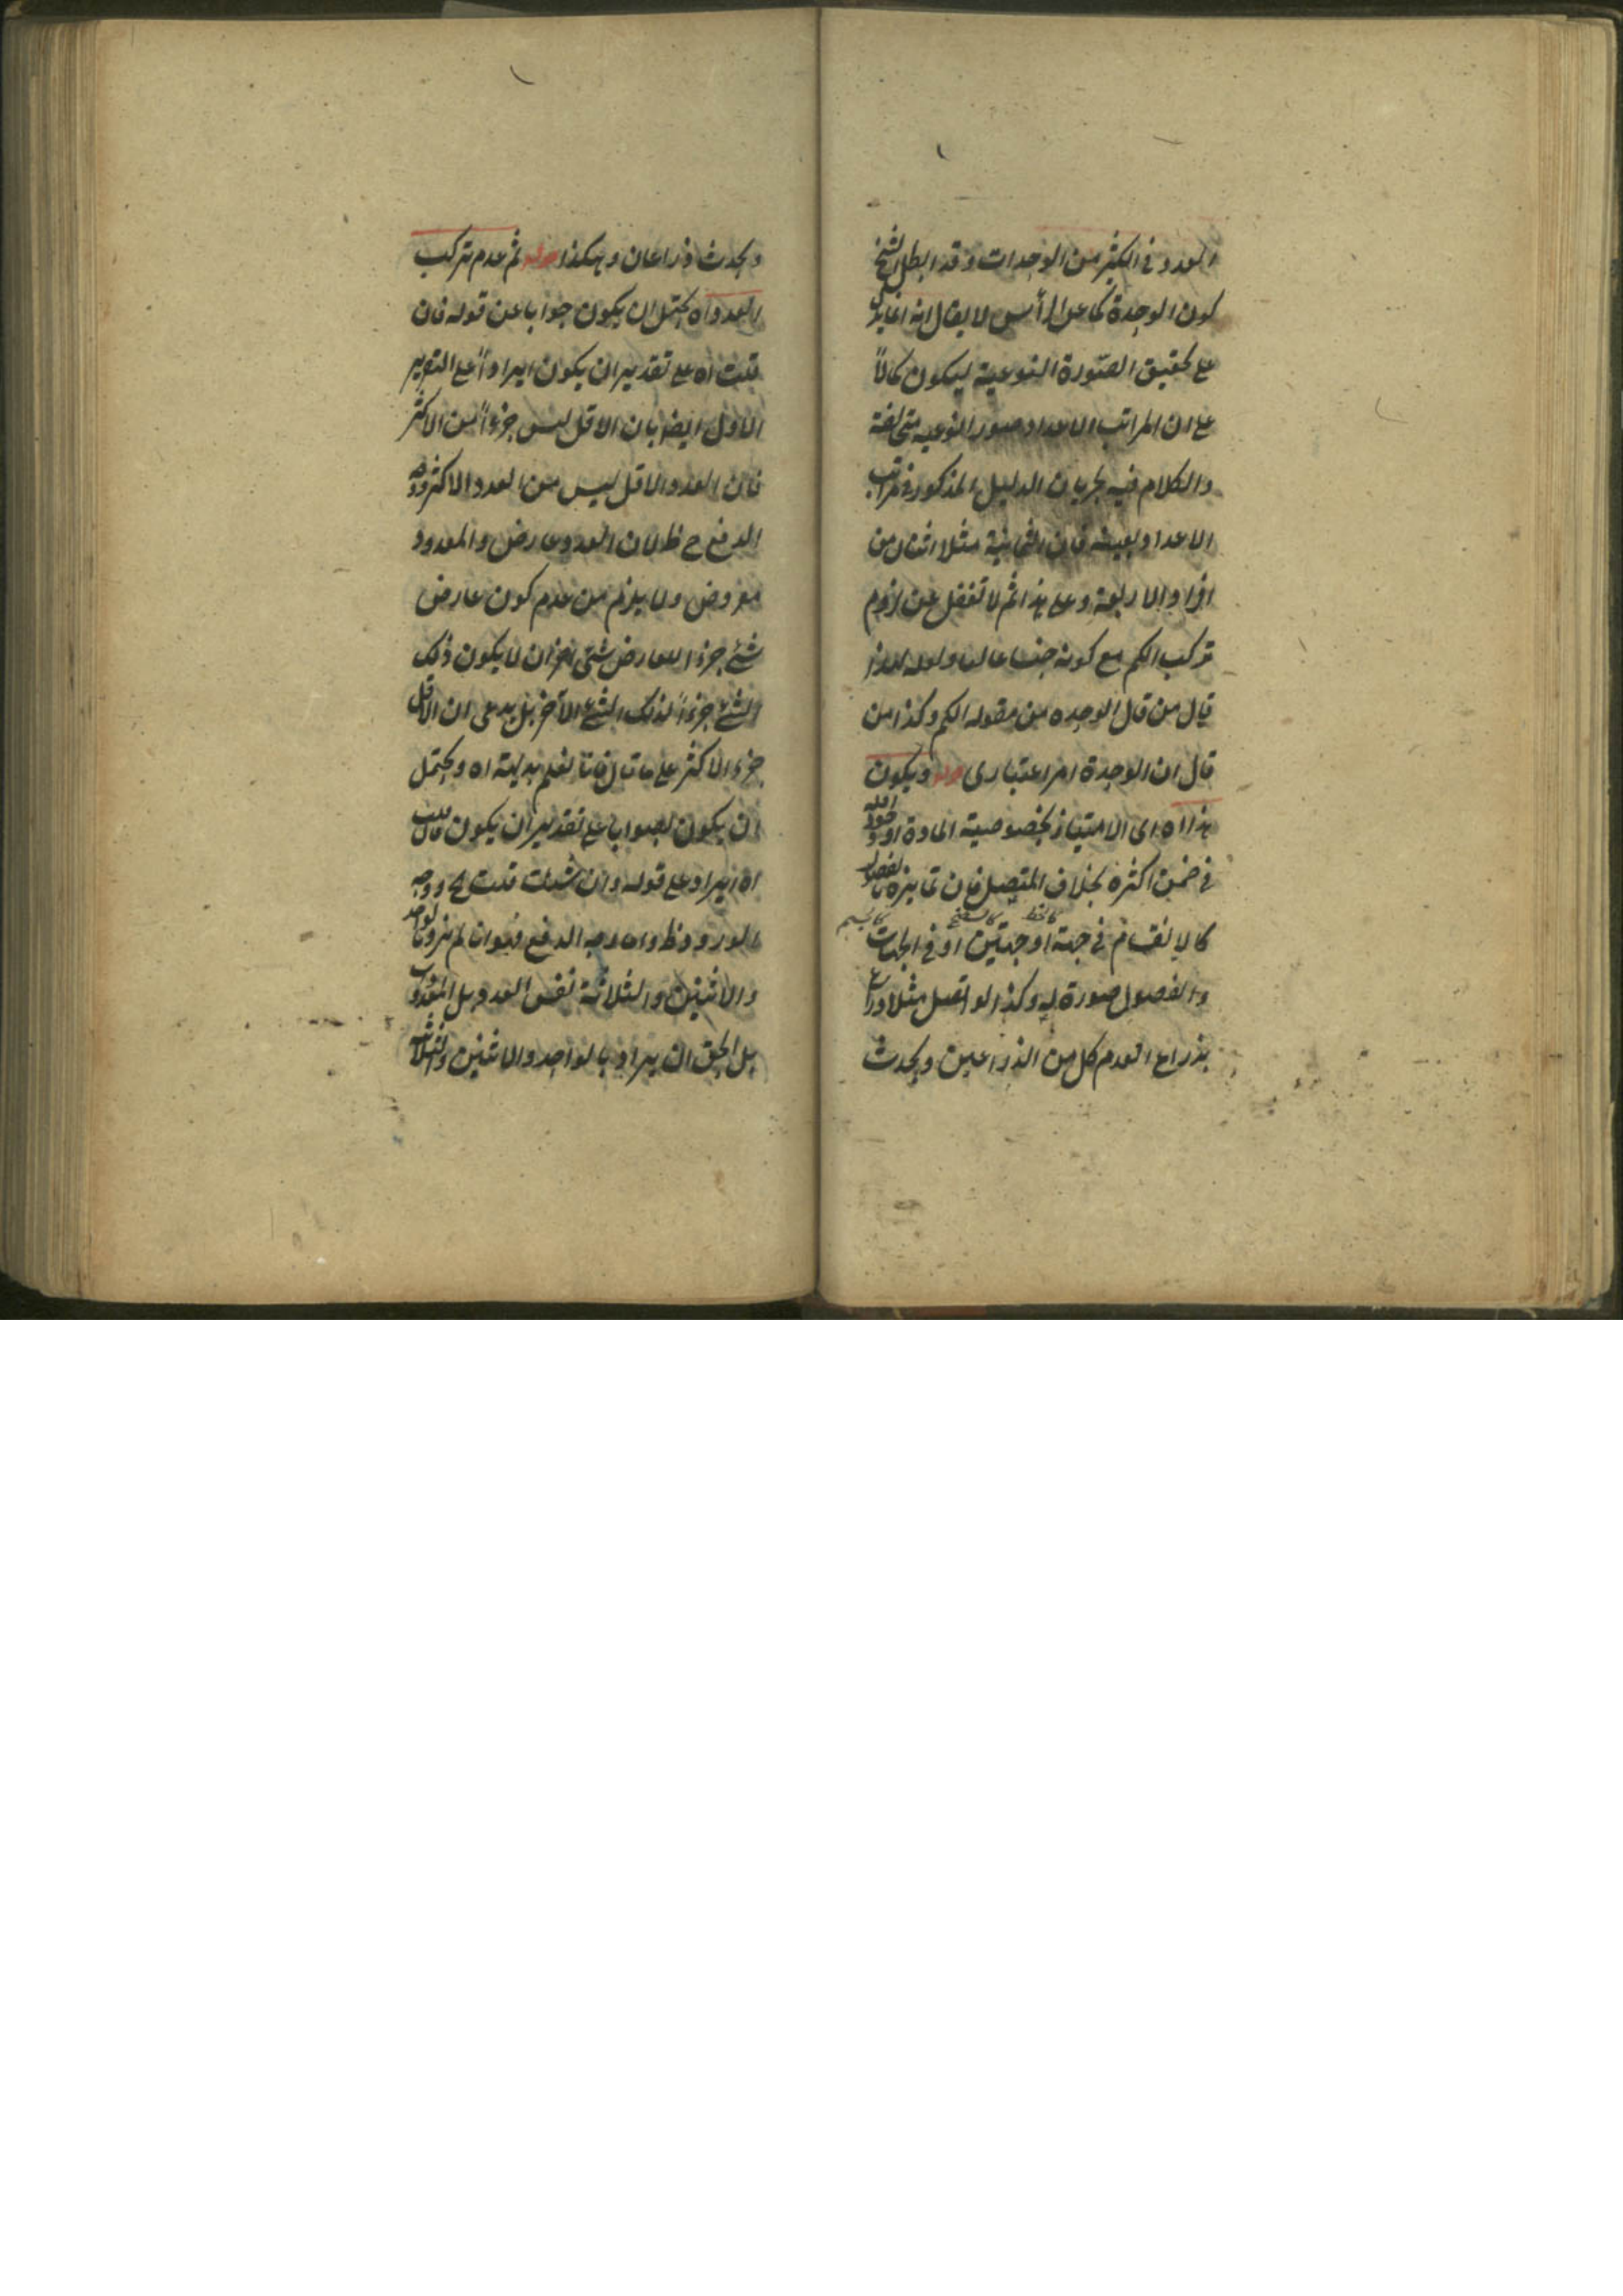 العدد في الكثير من الوحدات وقد ابطل الشيخ
كون الوحدة كما عن الرأس لا يقال انه انما يدل
على تحقيق الصّورة النوعية ليكون كمالاً
على ان المراتب الاعداد صور النوعيه متخالفة
والكلام فيه بجريان الدليل المذكور في مراتب
الاعداد بعينه فان الثمانية مثلا اثنان من
افراد الاربعة وعلى هذا ثم لا تغفل عن لزوم
تركب الكم مع كونه جنسا عاليا
قال من قال الوحده من مقوله الكم وكذا من
قال ان الوحدة امر اعتبارى قوله ويكون
هذا اه اى الامتياز بخصوصية المادة او
في ضمن اكثره بخلاف المتصل فان تمايزه بالفصول
كالخط كالسطح كالجسم
كالانقسام في جهة او جهتين او في الجهات
والفصول صورة له وكذا لو اتصل مثلا ذراع
بذراع انعدم كل من الذراعين ويحدث
ويحدث ذراعان وهكذا قوله ثم عدم تركب
العدد اه يحتمل ان يكون جوابا عن قوله فان
قلت اه على تقدير ان يكون ايراداً على التقرير
الاول ايضا بان الاقل ليس جزءاً من الاكثر
فان العدد الاقل ليس من العدد الاكثر ووجه
الدفع ح ظ لان العدد عارض والمعدود
معروض ولا يلزم من عدم كون عارض
شئ جزءا لعارض شئ اخر ان لا يكون ذلك
الشئ جزءاً لذلك الشئ الآخر بل يدعى ان الاقل
جزء الاكثر على ما قال فانا نعلم بديهة اه ويحتمل
ان يكون الجواب على تقدير ان يكون فان قلت
اه ايراد على قوله وان شئت قلت ح ووجه
الورود ظ واما وجه الدفع فهو ان لم يرد بالواحد
والاثنين والثلاثة نفس العدد بل المعدود
بل الحق ان يراد بالواحد والاثنين والثلاثة